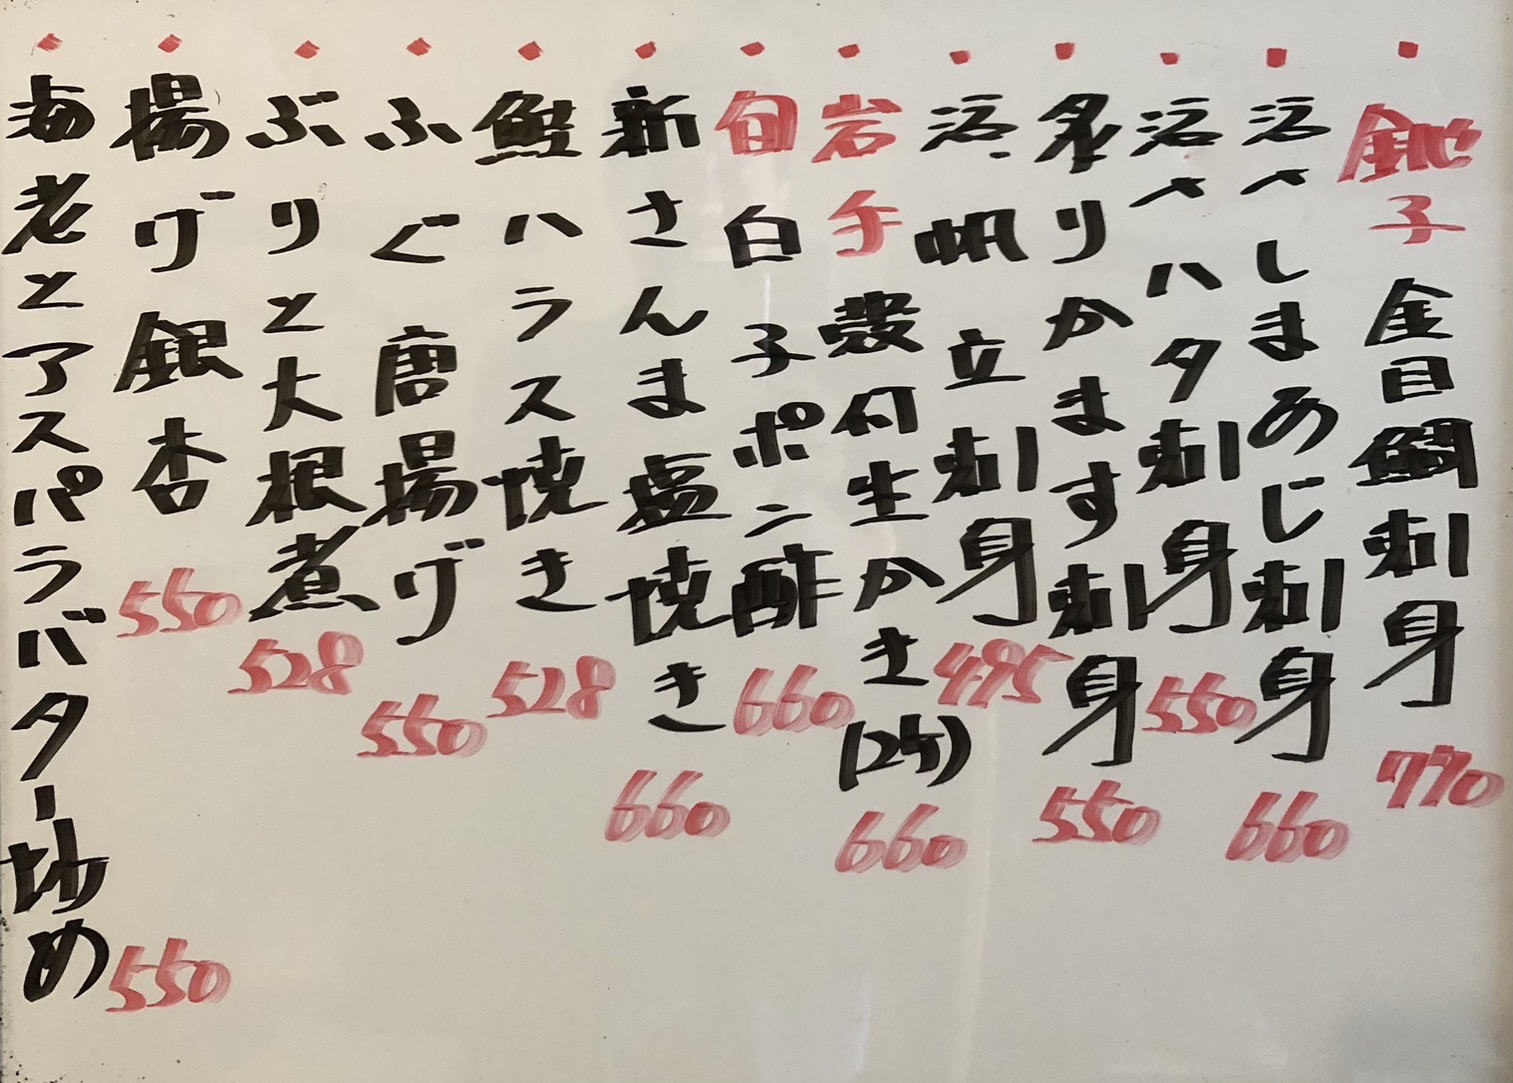 銚子金目鯛刺身 770
活〆しまあじ刺身 660
活〆ハタ刺身 550
炙りかます刺身 550
活帆立刺身 495
岩手殻付生かき(2ケ) 660
旬白子ポン酢 660
新さんま塩焼き 660
鮭ハラス焼き 528
ふぐ唐揚げ 550
ぶりと大根煮 528
揚げ銀杏 550
海老とアスパラバター炒め 550